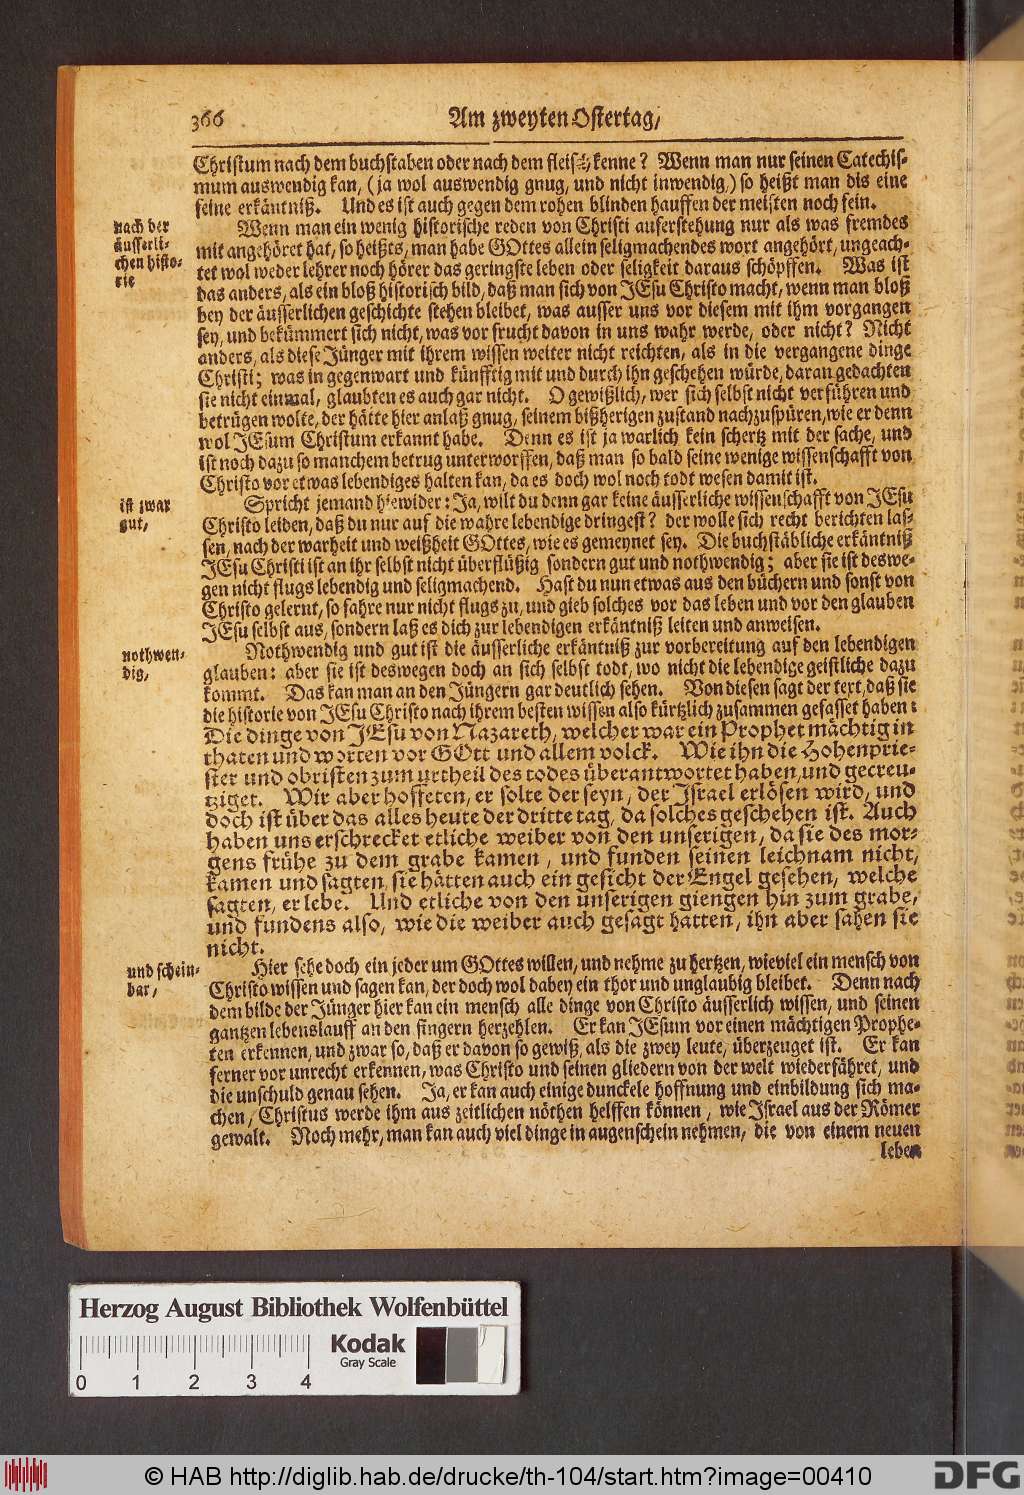 366
Am zweyten Ostertag,
Christum nach dem buchstaben oder nach dem fleisch kenne? Wenn man nur seinen Catechis-
mum auswendig kan, (ja wol auswendig gnug, und nicht inwendig,) so heißt man dis eine
feine erkäntniß. Und es ist auch gegen dem rohen blinden hauffen der meisten noch fein.
nach der
äusserli-
chen histo-
rie
Wenn man ein wenig historische reden von Christi auferstehung nur als was fremdes
mit angehöret hat, so heißts, man habe GOttes allein seligmachendes wort angehört, ungeach-
tet wol weder lehrer noch hörer das geringste leben oder seligkeit daraus schöpffen. Was ist
das anders, als ein bloß historisch bild, daß man sich von JEsu Christo macht, wenn man bloß
bey der äusserlichen geschichte stehen bleibet, was ausser uns vor diesem mit ihm vorgangen
sey, und bekümmert sich nicht, was vor frucht davon in uns wahr werde, oder nicht? Nicht
anders, als diese Jünger mit ihrem wissen weiter nicht reichten, als in die vergangene dinge
Christi; was in gegenwart und künfftig mit und durch ihn geschehen würde, daran gedachten
sie nicht einmal, glaubten es auch gar nicht. O gewißlich, wer sich selbst nicht verführen und
betrügen wolte, der hätte hier anlaß gnug, seinem bißherigen zustand nachzuspüren, wie er denn
wol JEsum Christum erkannt habe. Denn es ist ja warlich kein schertz mit der sache, und
ist noch dazu so manchem betrug unterworffen, daß man so bald seine wenige wissenschafft von
Christo vor etwas lebendiges halten kan, da es doch wol noch todt wesen damit ist.
ist zwar
gut,
Spricht jemand hiewider: Ja, wilt du denn gar keine äusserliche wissenschafft von JEsu
Christo leiden, daß du nur auf die wahre lebendige dringest? der wolle sich recht berichten las-
sen, nach der warheit und weißheit GOttes, wie es gemeynet sey. Die buchstäbliche erkäntniß
JEsu Christi ist an ihr selbst nicht überflüßig sondern gut und nothwendig; aber sie ist deswe-
gen nicht flugs lebendig und seligmachend. Hast du nun etwas aus den büchern und sonst von
Christo gelernt, so fahre nur nicht flugs zu, und gieb solches vor das leben und vor den glauben
JEsu selbst aus, sondern laß es dich zur lebendigen erkäntniß leiten und anweisen.
nothwen-
dig,
Nothwendig und gut ist die äusserliche erkäntniß zur vorbereitung auf den lebendigen
glauben: aber sie ist deswegen doch an sich selbst todt, wo nicht die lebendige geistliche dazu
kommt. Das kan man an den Jüngern gar deutlich sehen. Von diesen sagt der text, daß sie
die historie von JEsu Christo nach ihrem besten wissen also kürtzlich zusammen gefasset haben:
Die dinge von JEsu von Nazareth, welcher war ein Prophet mächtig in
thaten und worten vor GOtt und allem volck. Wie ihn die Hohenprie-
ster und obristen zum urtheil des todes überantwortet haben, und gecreu-
tziget. Wir aber hoffeten, er solte der seyn, der Israel erlösen wird, und
doch ist über das alles heute der dritte tag, da solches geschehen ist. Auch
haben uns erschrecket etliche weiber von den unserigen, da sie des mor-
gens frühe zu dem grabe kamen, und funden seinen leichnam nicht,
kamen und sagten, sie hätten auch ein gesicht der Engel gesehen, welche
sagten, er lebe. Und etliche von den unserigen giengen hin zum grabe,
und fundens also, wie die weiber auch gesagt hatten, ihn aber sahen sie
nicht.
und schein-
bar,
Hier sehe doch ein jeder um GOttes willen, und nehme zu hertzen, wieviel ein mensch von
Christo wissen und sagen kan, der doch wol dabey ein thor und unglaubig bleibet. Denn nach
dem bilde der Jünger hier kan ein mensch alle dinge von Christo äusserlich wissen, und seinen
gantzen lebenslauff an den fingern herzehlen. Er kan JEsum vor einen mächtigen Prophe-
ten erkennen, und zwar so, daß er davon so gewiß, als die zwey leute, überzeuget ist. Er kan
ferner vor unrecht erkennen, was Christo und seinen gliedern von der welt wiederfähret, und
die unschuld genau sehen. Ja, er kan auch einige dunckele hoffnung und einbildung sich ma-
chen, Christus werde ihm aus zeitlichen nöthen helffen können, wie Israel aus der Römer
gewalt. Noch mehr, man kan auch viel dinge in augenschein nehmen, die von einem neuen
leben
Herzog August Bibliothek Wolfenbüttel
Kodak
Gray Scale
0 1 2 3 4
© HAB http://diglib.hab.de/drucke/th-104/start.htm?image=00410
DFG